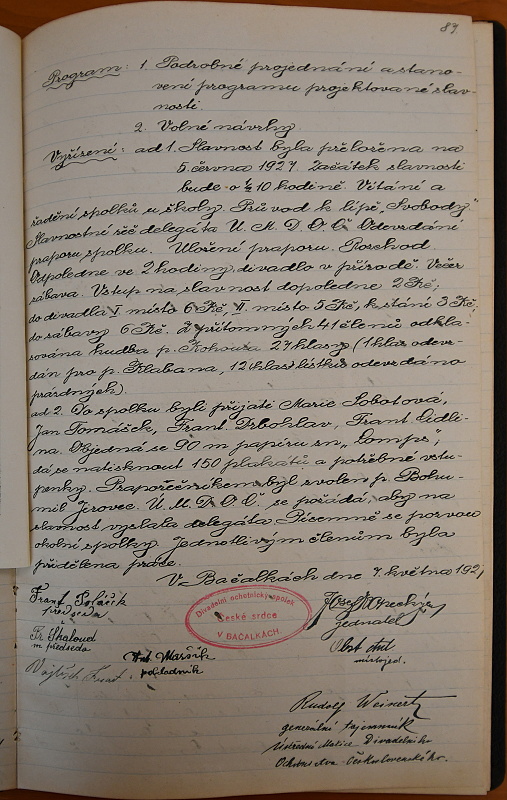 89.
Program: 1. Podrobné projednání a stano-
vení programu projektované slav-
nosti.
2. Volné návrhy.
Vyřízení: ad 1. Slavnost byla přeložena na
5. června 1927. Začátek slavnosti
bude o ½ 10 hodině. Vítání a
řadění spolků u školy. Průvod k lípě „Svobody"
Slavnostní řeč delegáta Ú. M. D. O. Č. Odevzdání
praporu spolku. Uložení praporu. Rozchod.
Odpoledne ve 2 hodiny divadlo v přírodě. Večer
zábava. Vstup na slavnost dopoledne 2 Kč;
do divadla I. místo 6 Kč, II. místo 5 Kč, k stání 3 Kč,
do zábavy 6 Kč. Z přítomných 41 členů odhla-
sována hudba p. Kohouta 27 hlasy (1 hlas odevz-
dán pro p. Klabana, 12 hlas. lístků odevzdáno
prázdných)
ad 2. Do spolku byli přijati Marie Sobotová,
Jan Tomášek, Frant. Trbohlav, Frant. Cidli-
na. Objedná se 90 m papíru zn.
dá se natisknout 150 plakátů a potřebné vstu-
penky. Praporečníkem byl zvolen p. Bohu-
mil Jerovec. Ú. M. D. O. Č. se požádá, aby na
slavnost vyslala delegáta. Písemně se pozvou
okolní spolky. Jednotlivým členům byla
přidělena práce.
V Bačalkách dne 7. května 192
Frant.
předseda
Fr. Skaloud
m předseda
Ant. Maršík
pokladník
Divadelní ochotnický spolek
České srdce
V BAČALKÁCH.
Josef
jednatel
místojed.
Rudolf Weinert
generální tajemník
Ústřední Matice Divadelního
Ochotnictva Československého.